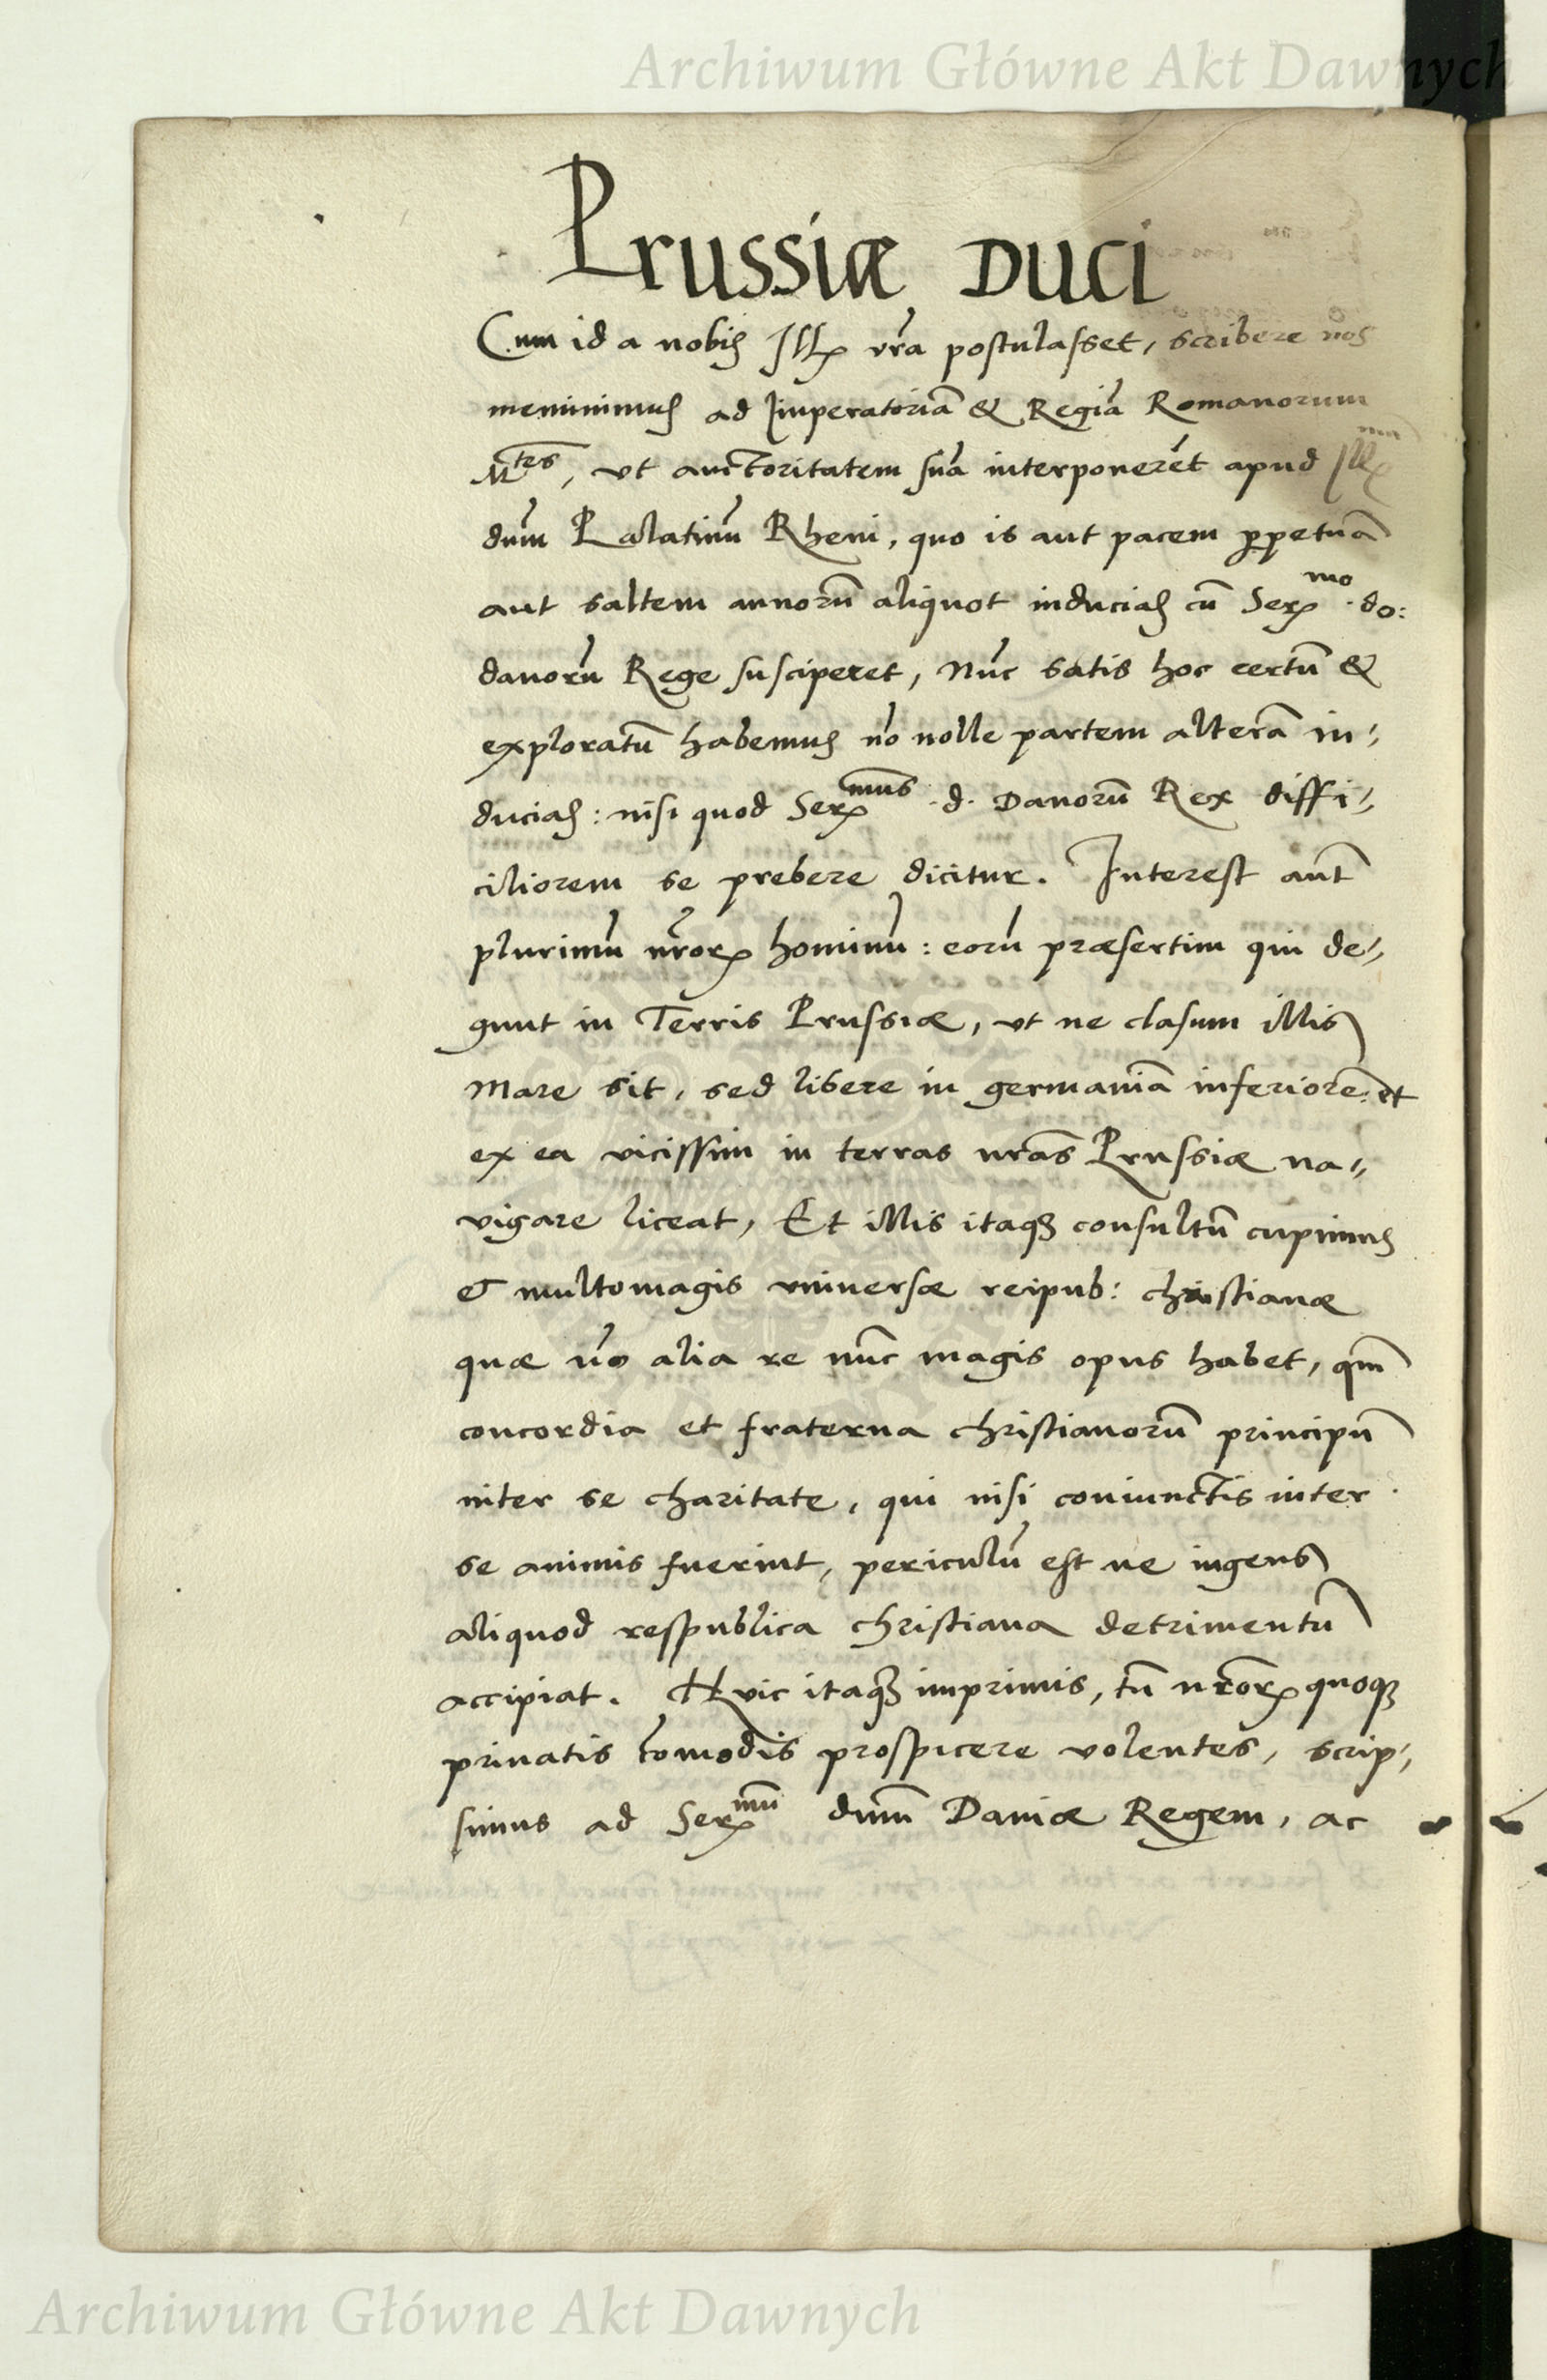 Archiwum Główne Akt Dawnych
Prussiæ Duci
Cum id a nobis Illꝝ vr̄a postulasset, scribere nos
meminimus ad Imperatoriā & Regiā Romanorum
Mtes, vt auctoritatem suā interponerēt apud Illꝝ
dnm̄ Palatinū Rheni, quo is aut pacem ꝑpetuā
aut saltem annorū aliquot inducias cū Serꝝmo do:
danorū Rege susciperet, Nūc satis hoc certū &
exploratū habemus nō nolle partem alterā in-,
ducias: nisi quod Serꝝmus .d. Danorū Rex diffi-,
ciliorem se prebere dicitur. Interest aut̄
plurimū nr̄orꝝ hominū: eorū præsertim qui de-,
gunt in Terris Prussiæ, vt ne clasum illis
Mare sit, sed libere in germaniā inferiorē: et
ex ea vicissim in terras nr̄as Prussiæ na-,
vigare liceat, Et illis itaqꝫ consultū cupimus
& multomagis vniversæ reipub: christianæ
quæ nō alia re nūc magis opus habet, qm̄
concordia et fraterna christianorū principū
inter se charitate, qui nisi coniunctis inter
se animis fuerint, periculū est ne ingens
aliquod respublica christiana detrimentū
accipiat. Huic itaqꝫ imprimis, tū nr̄orꝝ quoqꝫ
priuatis cōmodis prospicere volentes, scrip-,
simus ad Serꝝmū dnm̄ Daniæ Regem, ac
Archiwum Główne Akt Dawnych